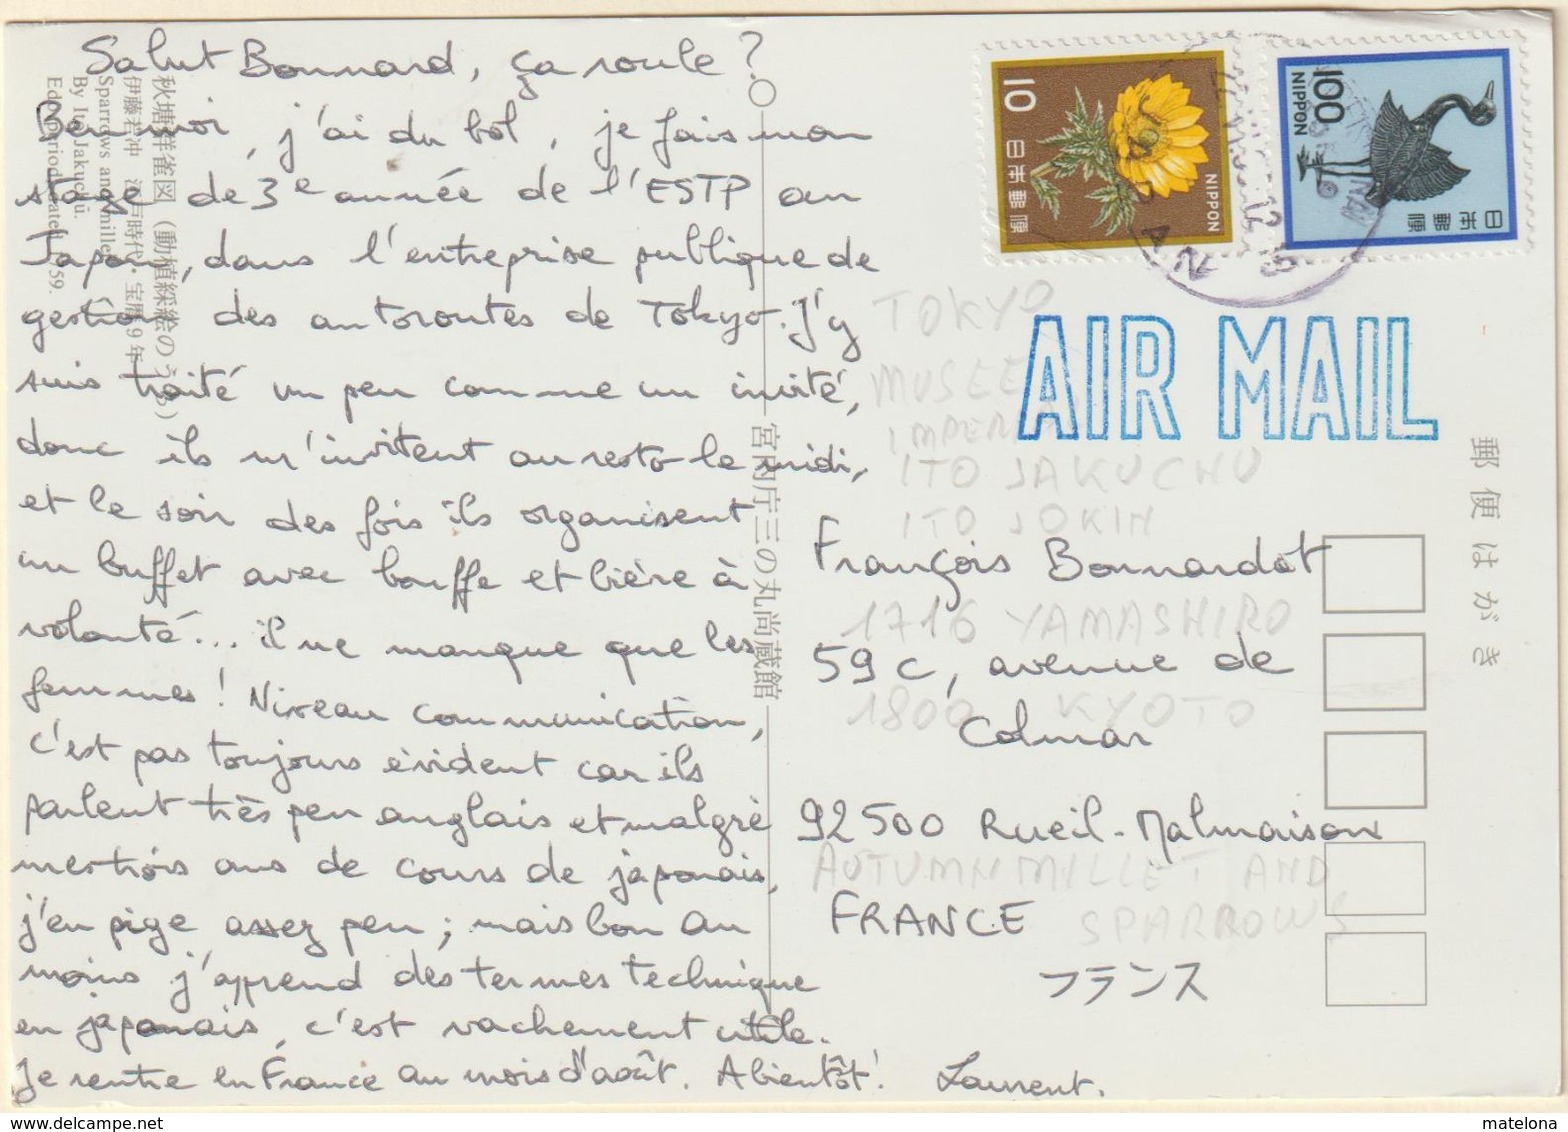 Salut Bonnard, ça roule ?
Ben moi, j'ai du bol, je fais mon
stage de 3e année de l'ESTP au
Japon, dans l'entreprise publique de
gestion des autoroutes de Tokyo. J'y
suis traité un peu comme un invité,
donc ils m'invitent au resto le midi,
et le soir des fois ils organisent
un buffet avec bouffe et bière à
volonté... il ne manque que les
femmes ! Niveau communication,
c'est pas toujours évident car ils
parlent très peu anglais et malgré
mes trois ans de cours de japonais,
j'en pige assez peu ; mais bon au
moins j'apprend des termes technique
en japonais, c'est vachement utile.
Je rentre en France au mois d'août. A bientôt ! Laurent.
秋塘群雀図（動植綵絵のうち）
伊藤若冲 江戸時代・宝暦9年
Sparrows and millet
By Itō Jakuchū.
Edo period, dated 1759.
宮内庁三の丸尚蔵館
10 日本郵便 NIPPON
100 NIPPON 日本郵便
AIR MAIL
郵便はがき
TOKYO
MUSEE
IMPER
ITO JAKUCHU
ITO JOKIN
1716 YAMASHIRO
1800 KYOTO
AUTUMN MILLET AND
SPARROWS
François Bonnardot
59 c, avenue de
Colmar
92500 Rueil-Malmaison
FRANCE
フランス
matelona